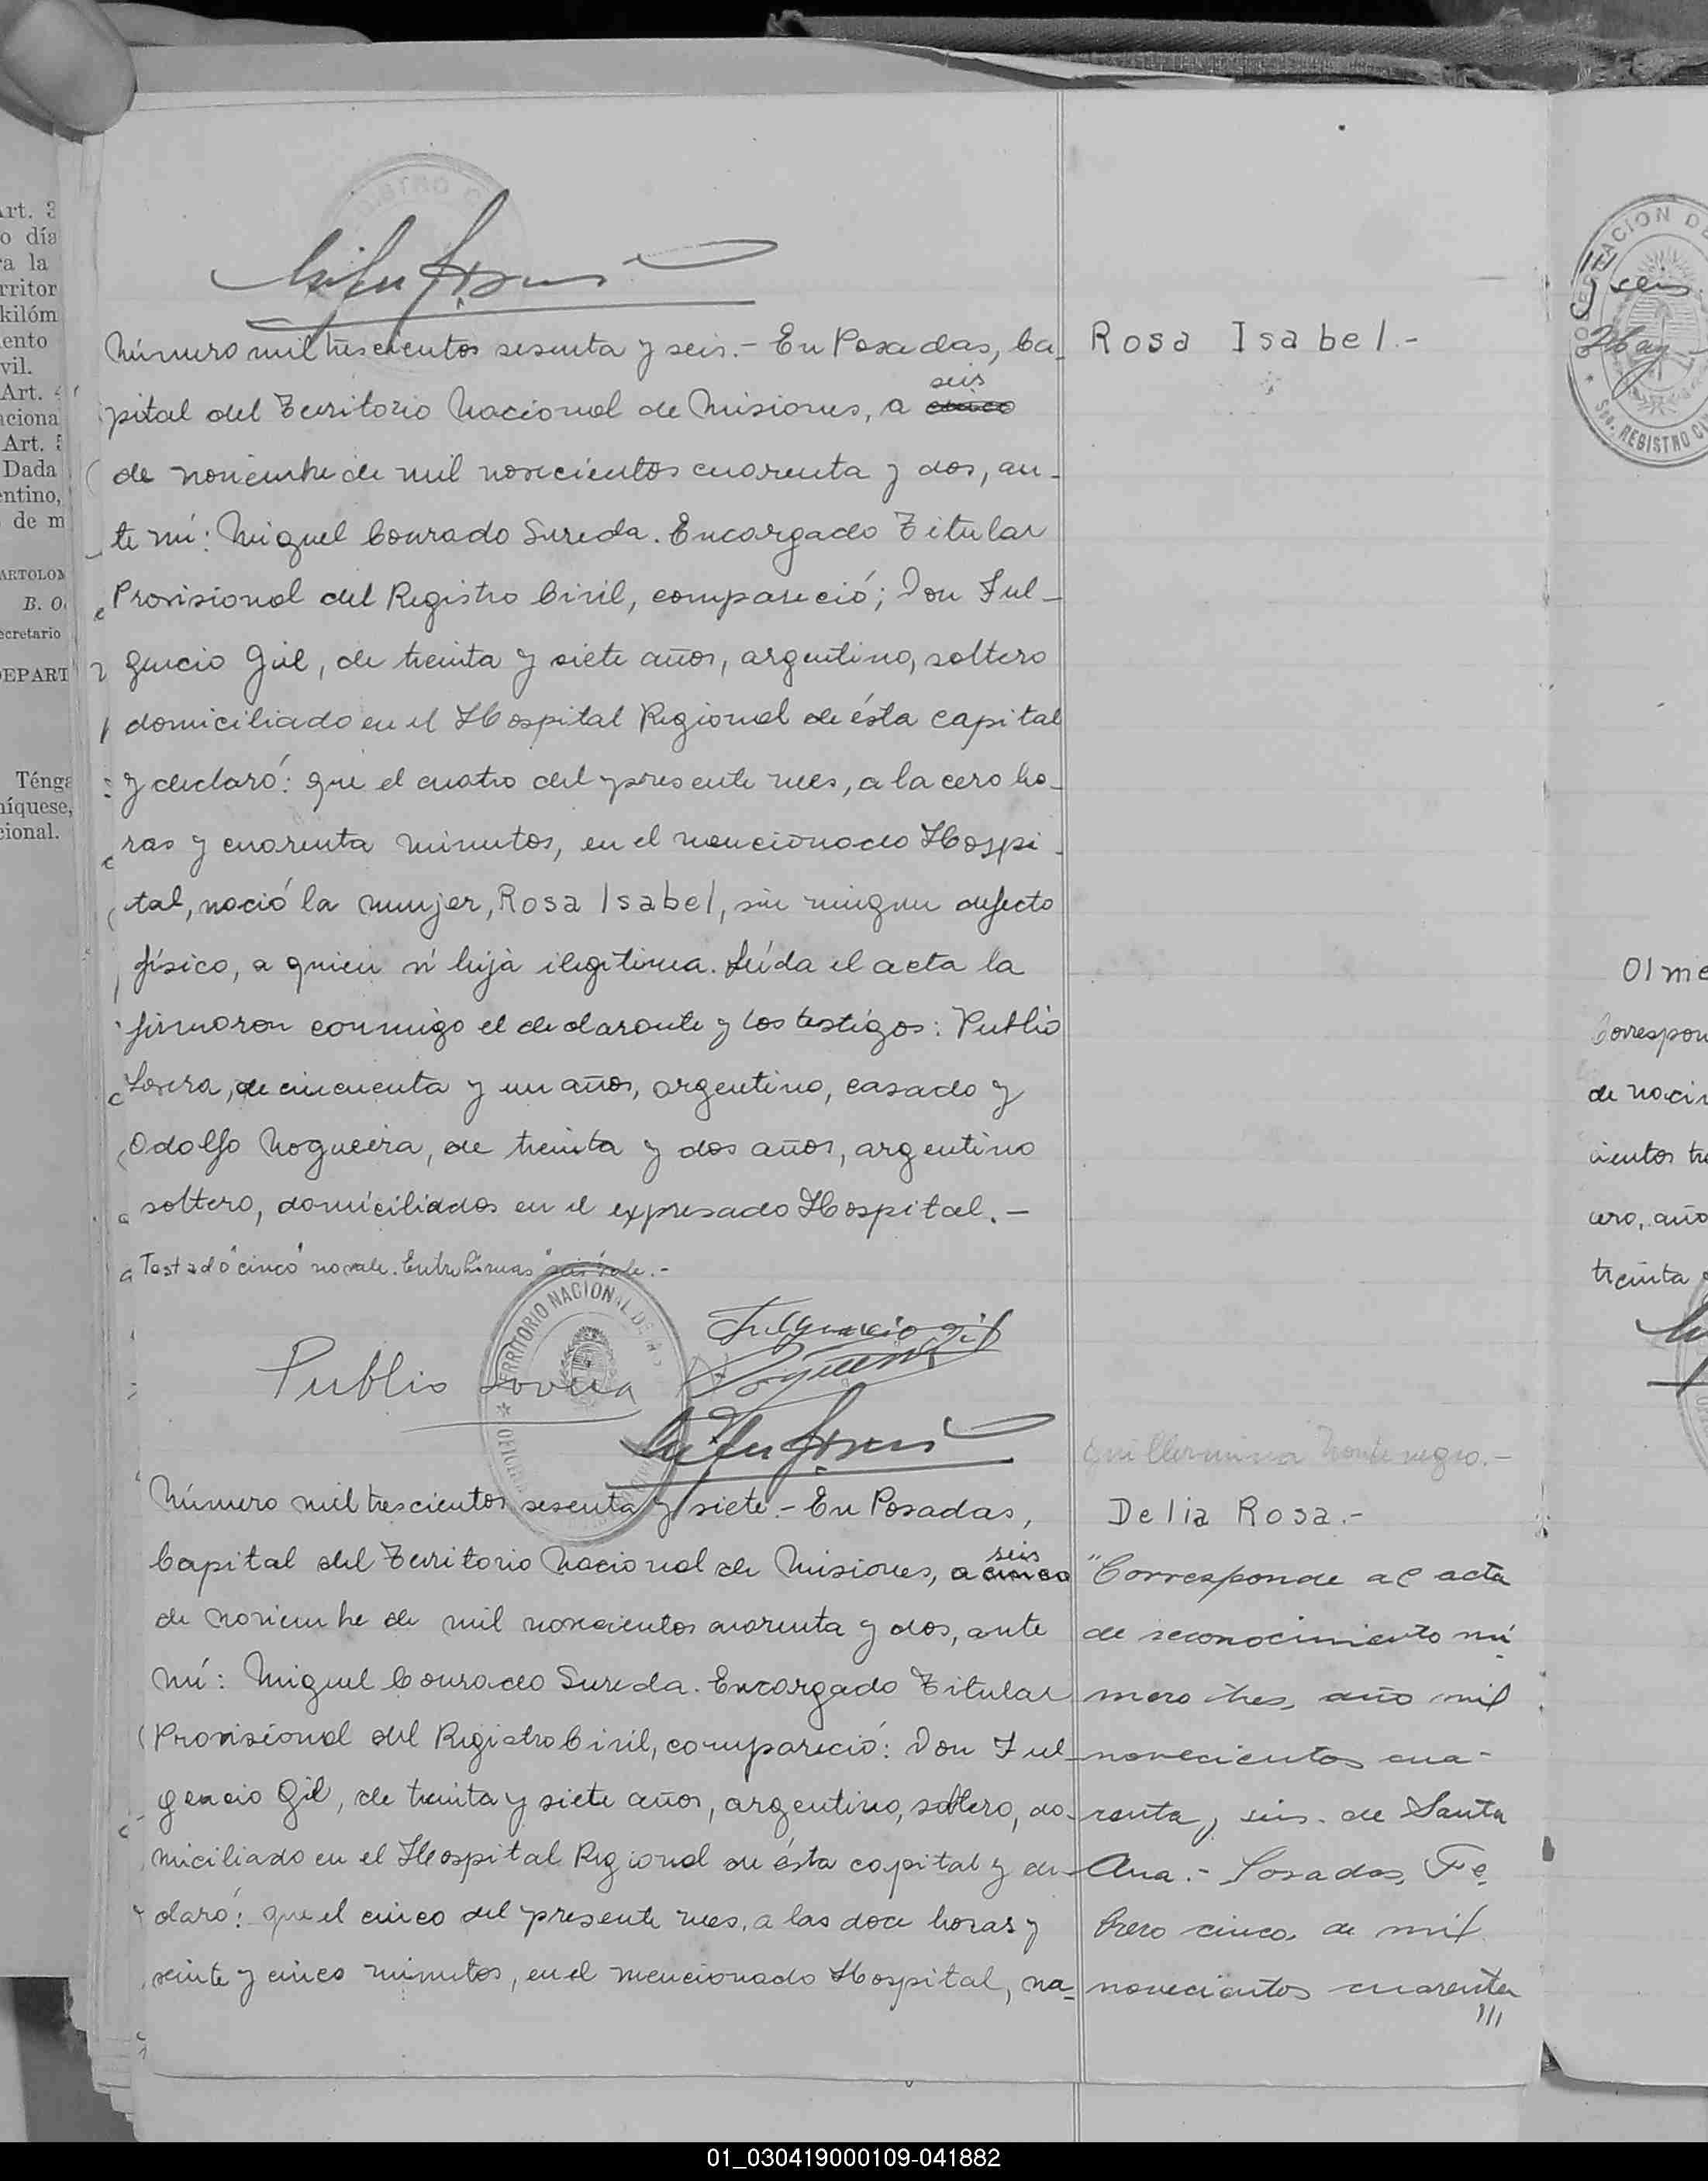 Art. 3
o día
ra la
rritor
kilóm
iento
vil.
Art. 4
aciona
Art. 5
Dada
entino,
de m
ARTOLOM
B. O
ecretario
DEPART
Ténga
níquese,
cional.
Número mil trescientos sesenta y seis.- En Posadas, Ca-
seis
pital del Territorio Nacional de Misiones, a cinco
de noviembre de mil novecientos cuarenta y dos, an-
te mí: Miguel Conrado Sureda. Encargado Titular
Provisional del Registro Civil, compareció; Don Ful-
gencio Gil, de treinta y siete años, argentino, soltero
domiciliado en el Hospital Regional de ésta capital
y declaró: que el cuatro del presente mes, a la cero ho-
ras y cuarenta minutos, en el mencionado Hospi-
tal, nació la mujer, Rosa Isabel, sin ningun defecto
físico, a quien ví hija ilegitima. Leída el acta la
firmaron conmigo el declarante y los testigos: Publio
Lovera, de cincuenta y un años, argentino, casado y
Odolfo Nogueira, de treinta y dos años, argentino
soltero, domiciliados en el expresado Hospital.-
Testado "cinco" no vale. Entre líneas "seis" vale.-
TERRITORIO NACIONAL DE
Fulgencio Gil
Publio Lovera
Número mil trescientos sesenta y siete.- En Posadas,
seis
Capital del Territorio Nacional de Misiones, a cinco
de noviembre de mil novecientos cuarenta y dos, ante
mí: Miguel Conrado Sureda. Encargado Titular
Provisional del Registro Civil, compareció: Don Ful-
gencio Gil, de treinta y siete años, argentino, soltero, do-
miciliado en el Hospital Regional de ésta capital y de-
claró: que el cinco del presente mes, a las doce horas y
veinte y cinco minutos, en el mencionado Hospital, na-
Rosa Isabel.-
Guillermina Montenegro.-
Delia Rosa.-
"Corresponde al acta
de reconocimiento nú-
mero tres, año mil
novecientos cua-
renta y seis. de Santa
Ana.- Posadas, Fe-
brero cinco, de mil
novecientos cuarenta
///
REGISTRO CI
y seis
Olme
Correspon
de nacim
cientos tre
cero, año
treinta
01_030419000109-041882